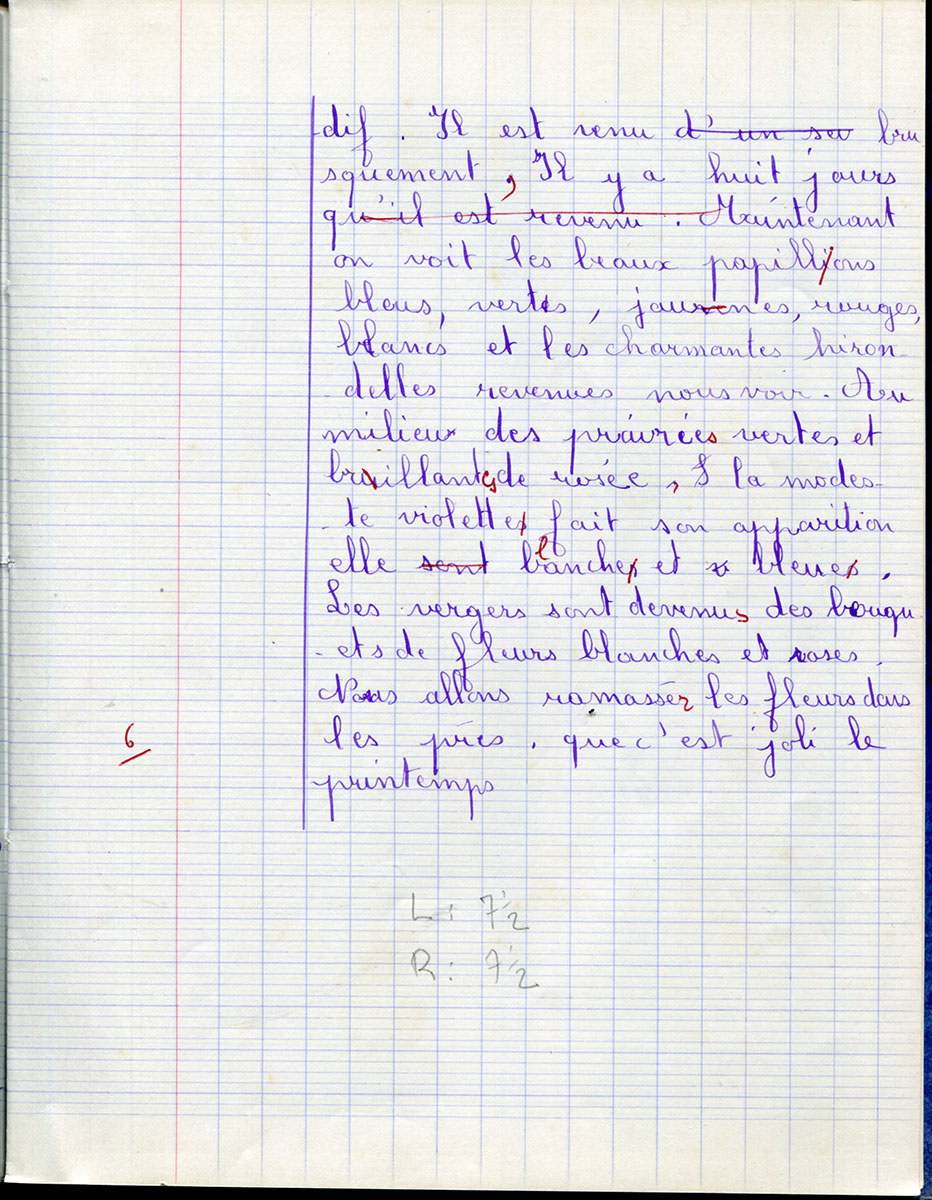 dif. Il est venu d'un seu bru
squement, Il y a huit jours
qu'il est revenu. Maintenant
on voit les beaux papillions
bleus, verts, jaunes, rouges,
blancs et les charmantes hiron
delles revenues nous voir. Au
milieu des prairies vertes et
brillantes de rosée, la modes-
te violette fait son apparition
elle sont blanches et bleues.
Les vergers sont devenus des bouqu
-ets de fleurs blanches et roses.
Nous allons ramasser les fleurs dans
les près. que c'est joli le
6
printemps
L: 7 1/2
R: 7 1/2